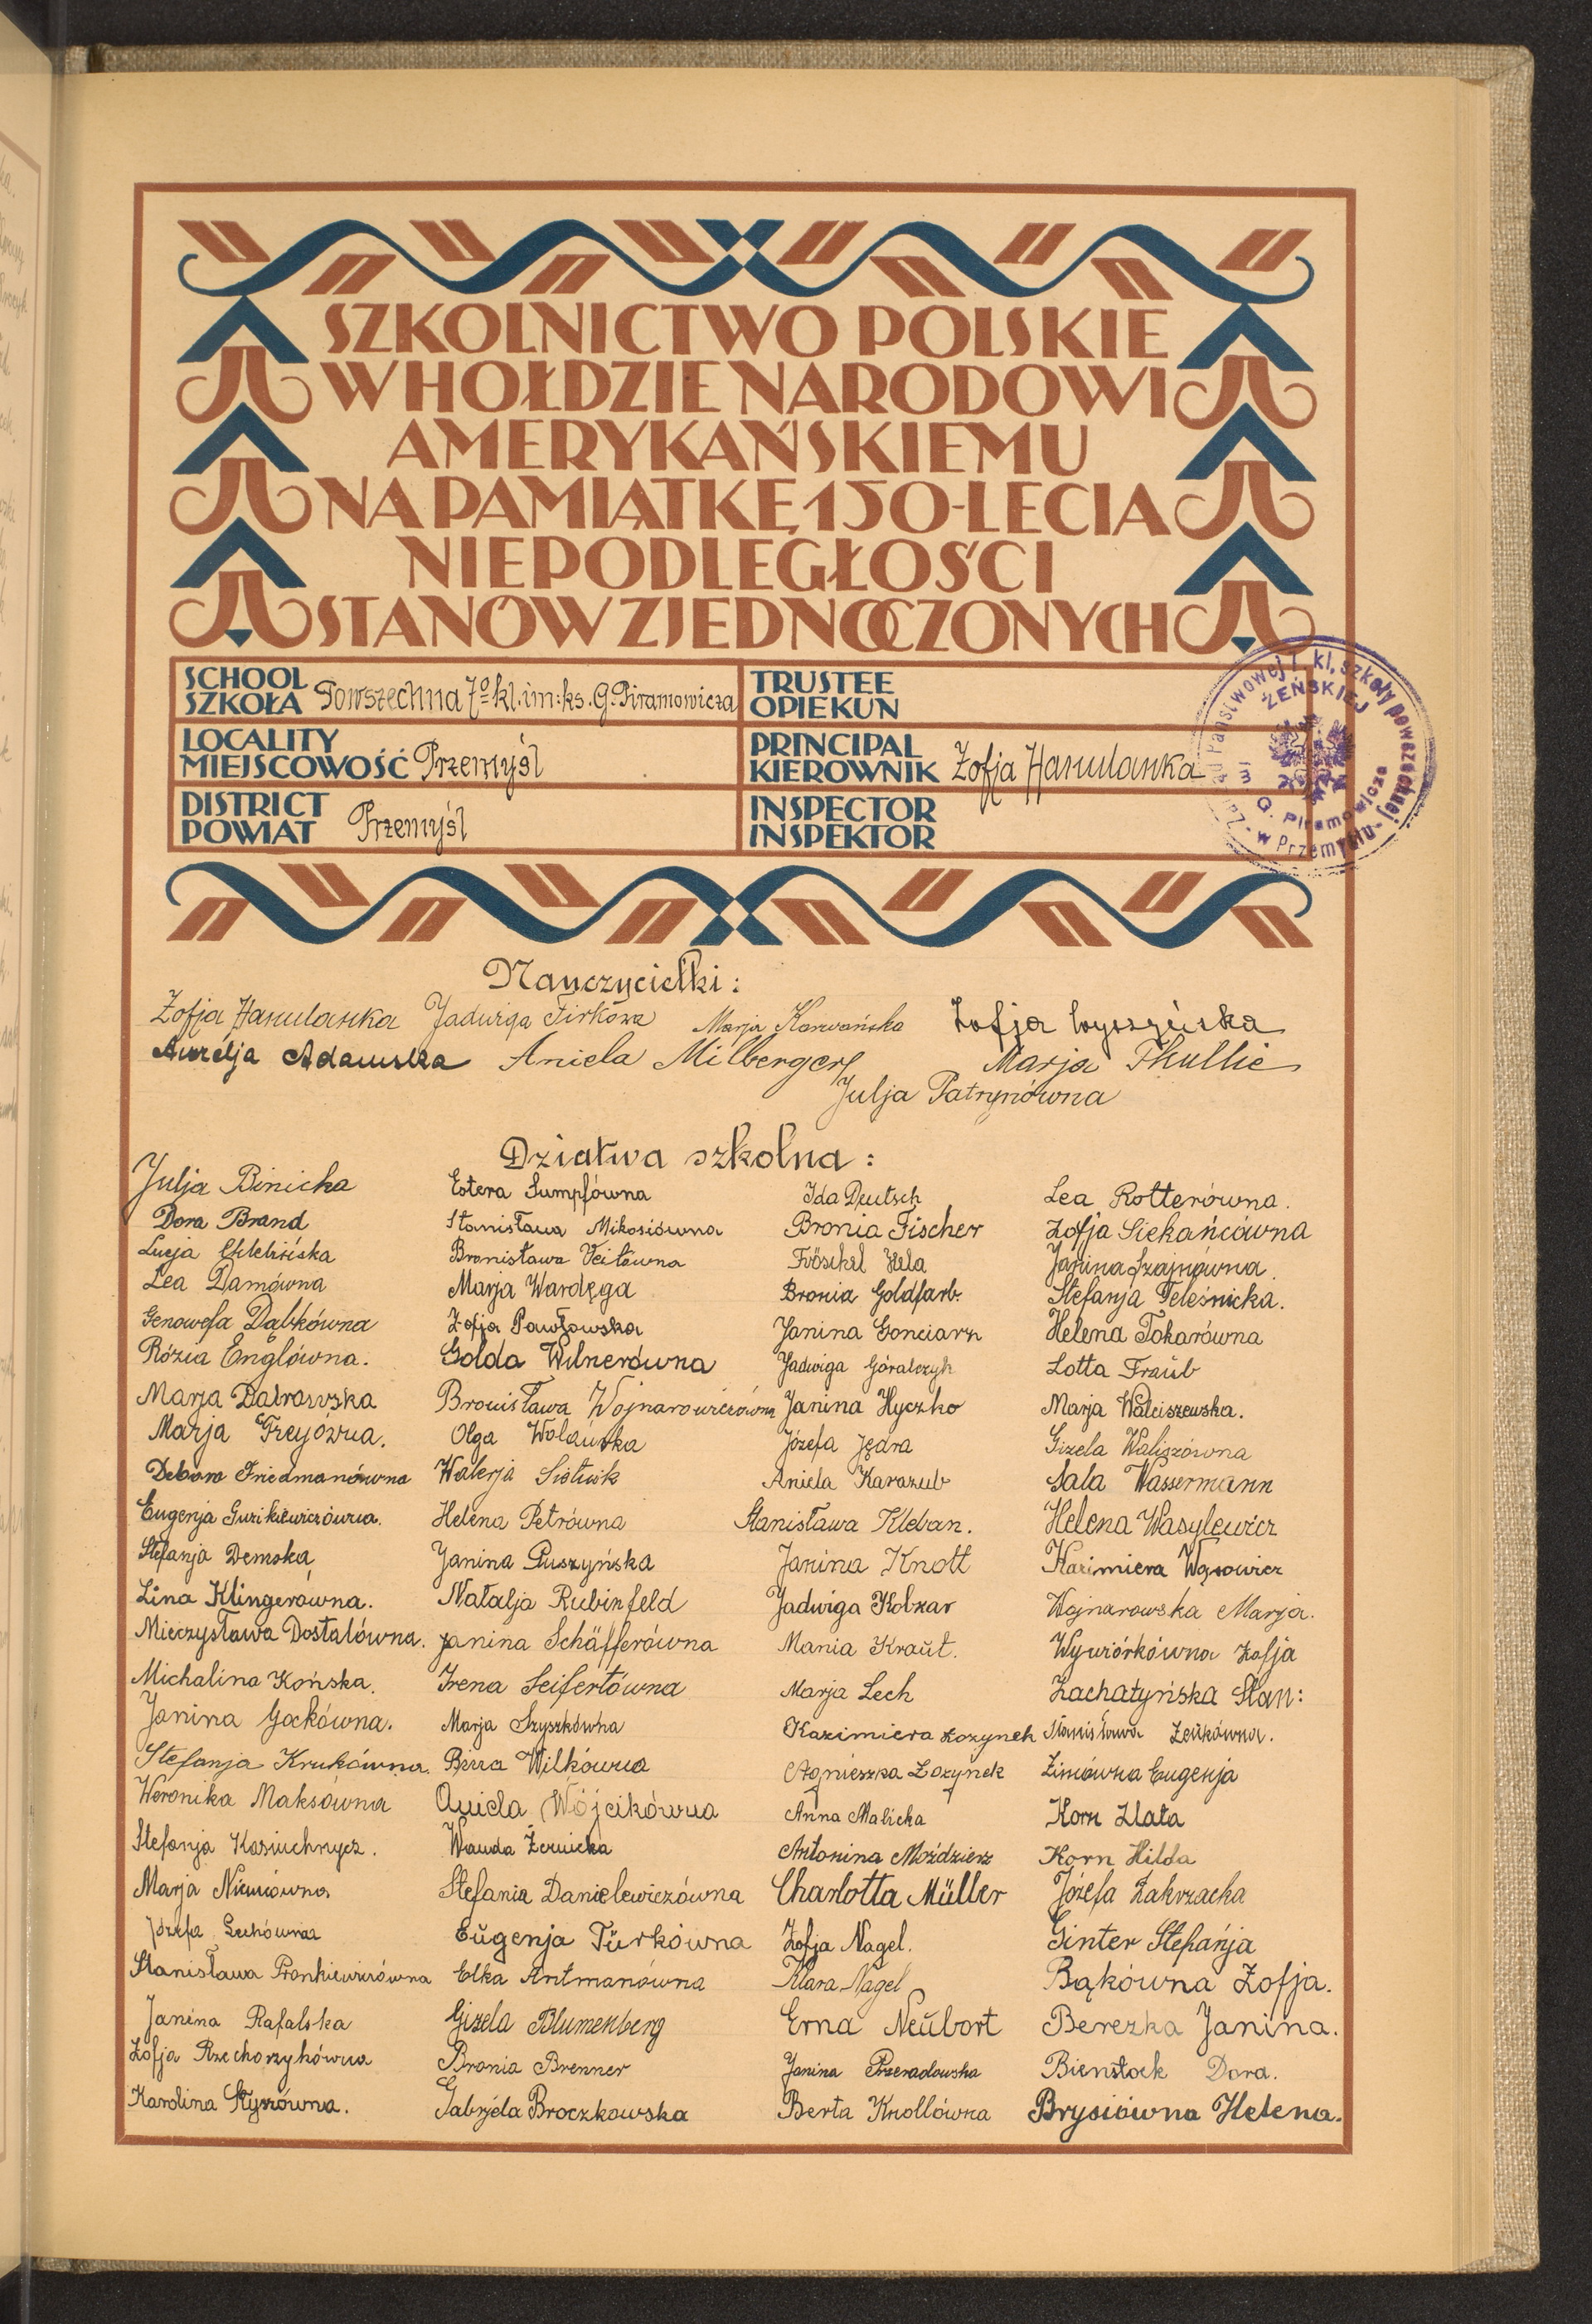 SZKOLNICTWO POLSKIE
W HOŁDZIE NARODOWI
AMERYKAŃSKIEMU
NA PAMIĄTKĘ 150-LECIA
NIEPODLEGŁOŚCI
STANÓW ZJEDNOCZONYCH
SCHOOL
SZKOŁA Powszechna 7º kl. im: ks. G. Piramowicza
TRUSTEE
OPIEKUN
LOCALITY
MIEJSCOWOŚĆ Przemyśl
PRINCIPAL
KIEROWNIK Zofja Hanulanka
DISTRICT
POWIAT Przemyśl
INSPECTOR
INSPEKTOR
Państwowej 7 kl. szkoły powszechnej
ŻEŃSKIEJ
im G. Piramowicza
w Przemyślu
Nauczycielki:
Zofja Hanulanka Jadwiga Firkowa Marja Zofja Wyszyńska
Aurelja Adamska Aniela Milberger Marja Thullie
Julja Patrynówna
Dziatwa szkolna:
Julja Binicka
Dora Brand
Łucja
Lea Damówna
Genowefa Dąbkówna
Rózia Englówna.
Marja Dabrowska
Marja Freyówna.
Debora Friedmanówna
Eugenja Guzikiewiczówna.
Stefanja Demska
Lina Klingerówna.
Mieczysława Dostalówna.
Michalina Końska.
Janina Gockówna.
Stefanja Krukówna.
Weronika Maksówna
Stefanja
Marja
Józefa Lechówna
Stanisława Fronkiewiczówna
Janina Rafalska
Zofja Rzechorzykówna
Karolina Styszówna.
Estera Sumpfówna
Stanisława Mikosiówna
Bronisława Veitówna
Marja Wardęga
Zofja Pawłowska
Golda Wilnerówna
Bronisława Wojnarowiczówna
Olga Wolańska
Walerja
Helena Petrówna
Janina Puszyńska
Natalja Rubinfeld
Janina Schäfferówna
Irena Seifertówna
Marja Szyszkówna
Wilkówna
Aniela Wójcikówna
Wanda Żernicka
Stefania Danielewiczówna
Eugenja Turkówna
Elka Antmanówna
Gizela Blumenberg
Bronia Brenner
Gabrjela Broczkowska
Ida Deutsch
Bronia Fischer
Fröschel Hela
Bronia Goldfarb.
Janina Gonciarz
Jadwiga Góralczyk
Janina Hyczko
Józefa Jędra
Aniela Karazub
Stanisława Kleban.
Janina Knott
Jadwiga Kobzar
Mania Kraut.
Marja Lech
Kazimiera Łozynek
Agnieszka Łozynek
Anna Malicka
Antonina Moździerz
Charlotta Müller
Zofja Nagel.
Klara Nagel
Erna Neubort
Janina Przeradowska
Berta Knollówna
Lea Rotterówna.
Zofja Siekańcówna
Janina Szajnówna.
Stefanja Teleśnicka.
Helena Tokarówna
Lotta Traub
Marja Walciszewska.
Gizela Waliszówna
Sala Wassermann
Helena Wasylewicz
Kazimiera Wąsowicz
Wojnarowska Marja.
Wywiórkówna Zofja
Zachatyńska Stan:
Stanisława Zeńkówna.
Zimówna Eugenja
Korn Zlata
Korn Hilda
Józefa Zakrzacka
Ginter Stefanja
Bąkówna Zofja.
Berezka Janina.
Bienstock Dora.
Brysiówna Helena.